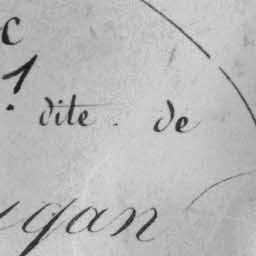 c
1
dite. de
gan